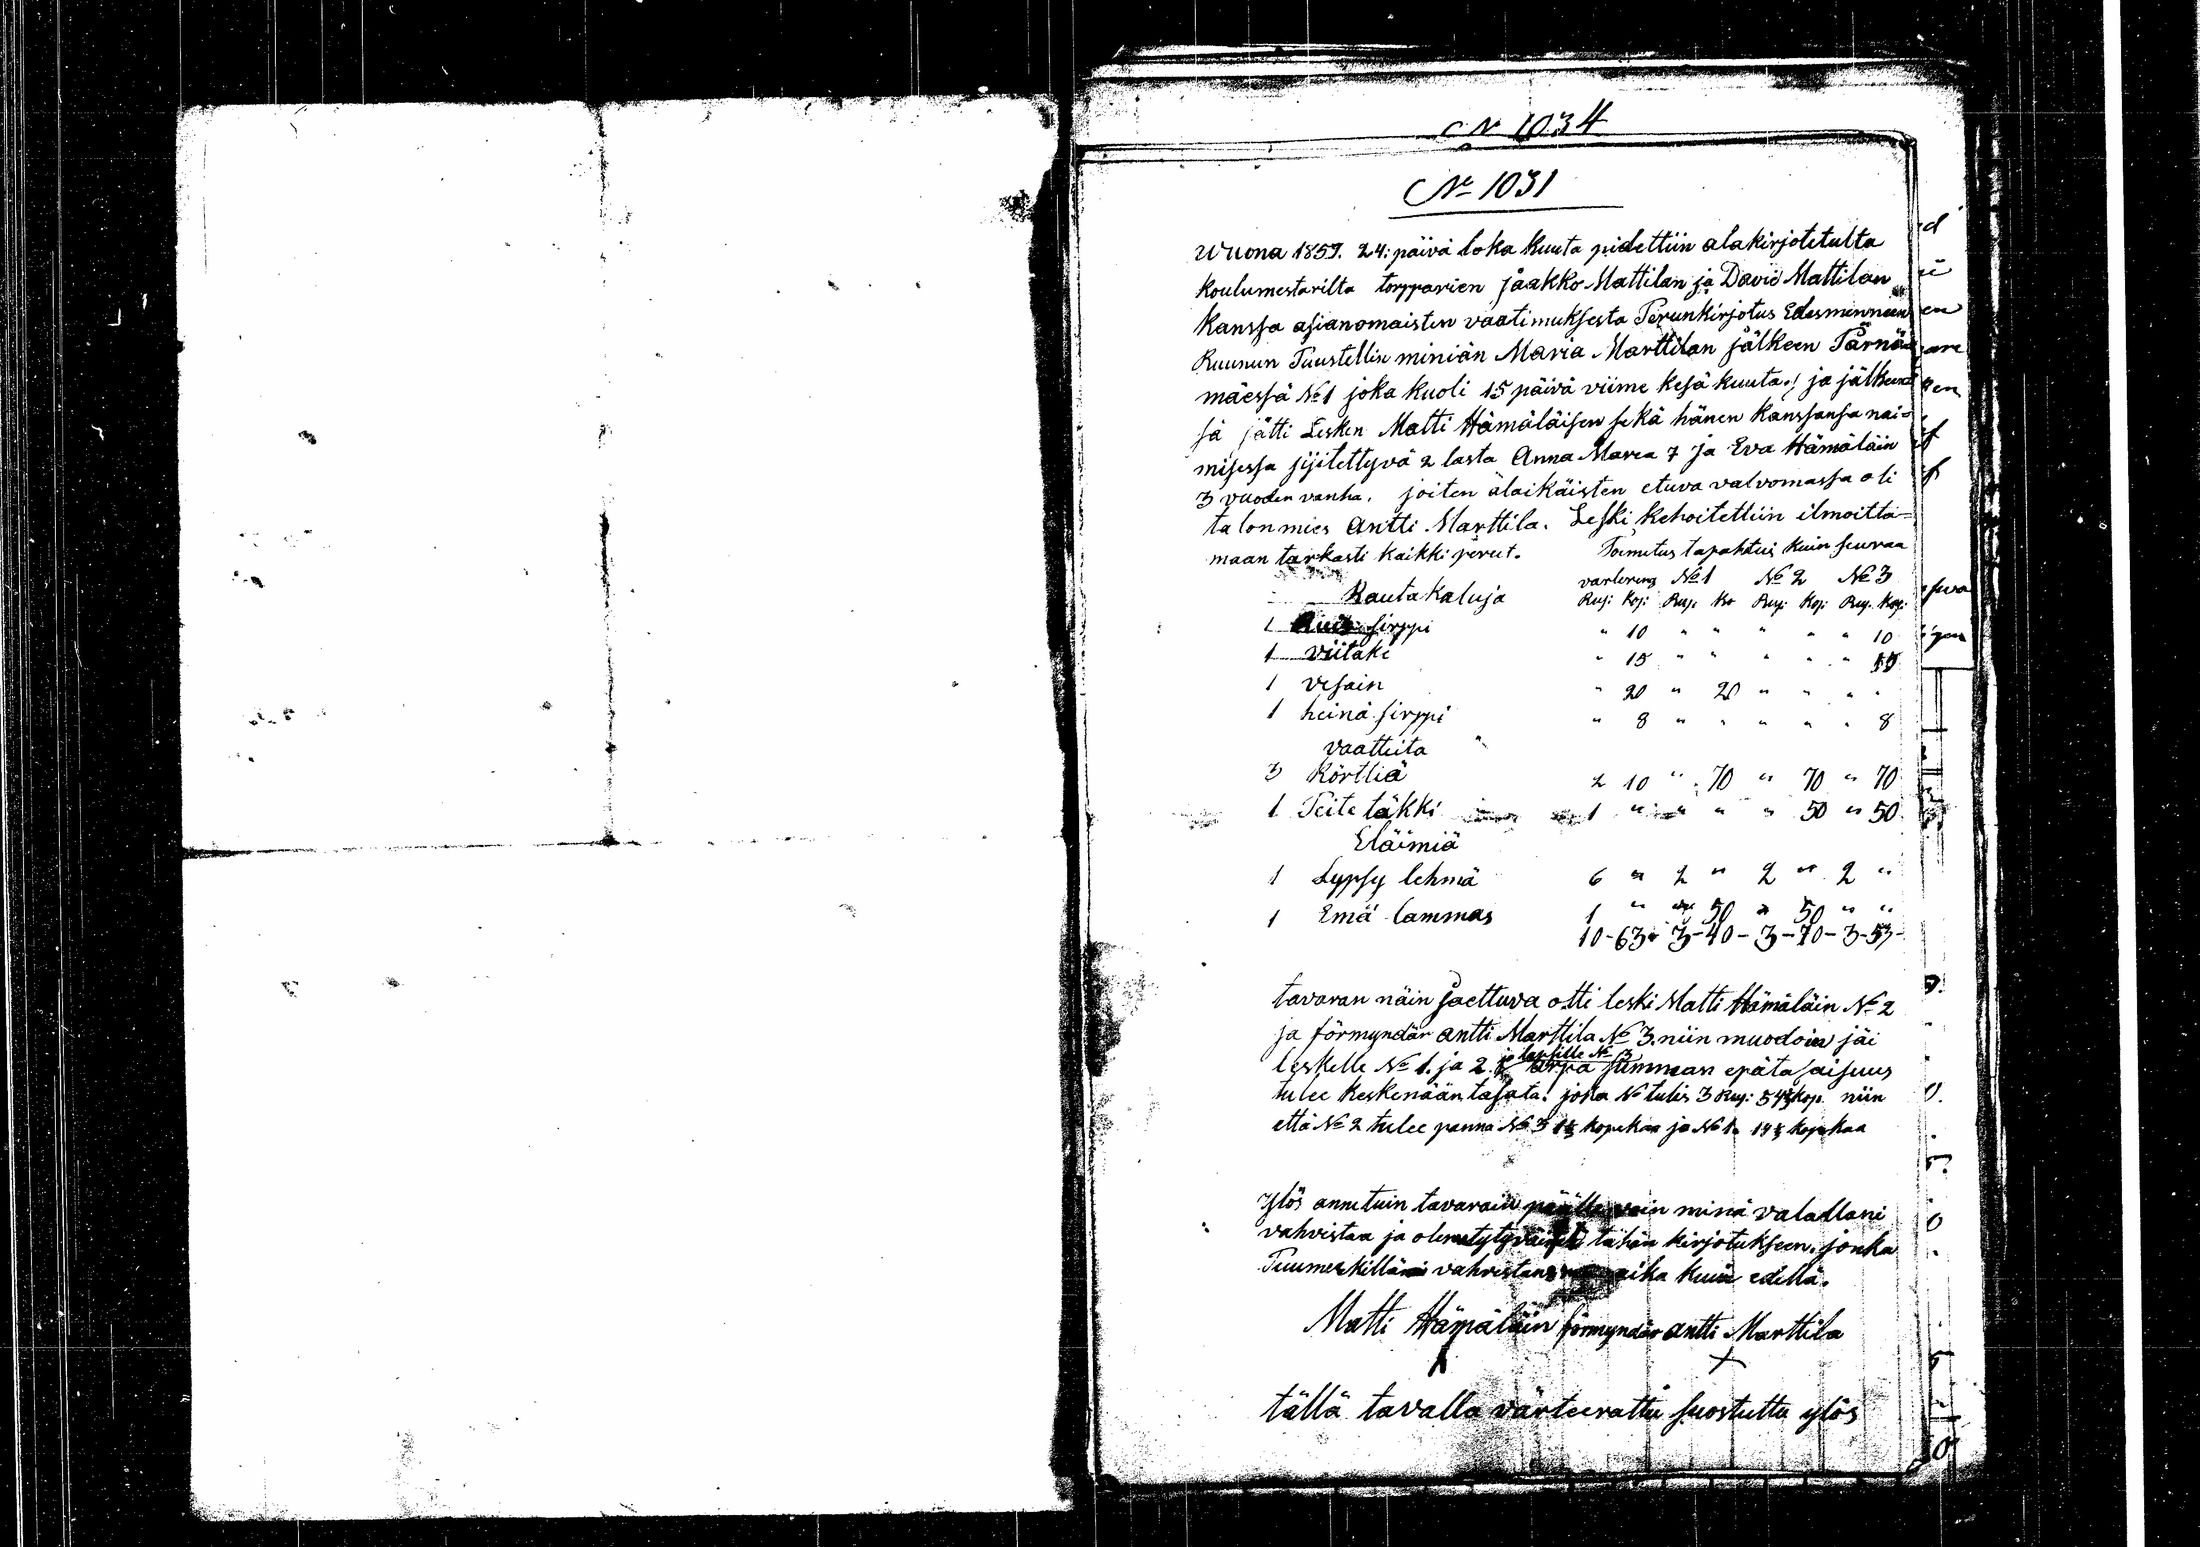 No 1034
No 1031
Wuona 1859. 24: päivä loka kuuta pidettiin alakirjotetulta
koulumestarilta torpparien Jaakko Mattilan ja David Mattilan
kanssa asianomaisten vaatimuksesta Perunkirjotus Edesmenneen
Ruunun Tuustellin miniän Maria Marttilan jälkeen Pärnä
mäessä No 1 joka kuoli 15 päivä viime kesä kuuta, ja jälkeen
sä jätti Lesken Matti Hämäläisen sekä hänen kanssansa nai=
misessa sijitettyvä 2 lasta Anna Maria 7 ja Eva Hämäläin
3 vuoden vanha, joiten alaikäisten etuva valvomassa oli
talonmies Antti Marttila. Leski kehoitettiin ilmoitta=
maan tarkasti kaikki perut. Toimitus tapahtui kuin seuraa
varlering No 1 No 2 No 3
Rautakaluja Rup: Kop: Rup: Ko Rup: Kop: Rup. Kop:
1 sirppi " 10 " " " " " 10
1 viitake " 15 " " " " " 15
1 vesain " 20 " 20 " " " "
1 heinä sirppi " 8 " " " " " 8
vaatteita "
3 Körttiä 2 10 " 70 " 70 " 70
1 Peite täkki 1 " " " " 50 " 50
Eläimiä
1 Lypsy lehmä 6 " 2 " 2 " 2 "
1 Emä lammas 1 " " 50 " 50 " "
10-63- 3-40- 3-70- 3-53-
tavaran näin jaettuva otti leski Matti Hämäläin No 2
ja förmyndär Antti Marttila No 3. niin muodoin jäi
ja lapsille No 3
leskelle No 1. ja 2. arpa summan epätasaisuus
tulee keskenään tasata. joka No tulis 3 Rup: 54⅓ kop. niin
että No 2 tulee panna No 3 1⅓ kopekaa ja No 1. 14⅓ kopekaa
Ylös annetuin tavarain päälle voin minä valallani
vahvistaa ja olen tähän kirjotukseen, jonka
Puumerkilläni aika kuin edellä.
Matti Hämäläin förmyndär Antti Marttila
tällä tavalla värteerattu suostuttu ylös